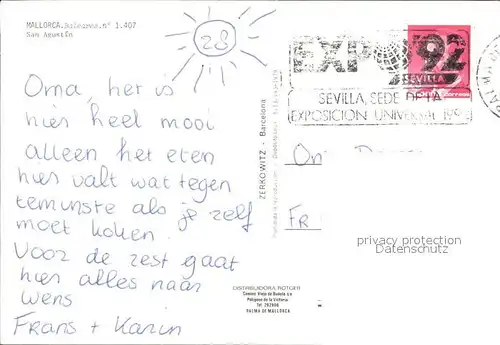 MALLORCA.Baleares.n° 1.407
San Agustín
28
EXPO'92
SEVILLA
correos
PALMA
SEVILLA, SEDE DE LA
EXPOSICION UNIVERSAL 1992
Oma, her is
hier heel mooi
alleen het eten
hier valt wat tegen
teminste als je zelf
moet koken.
Voor de rest gaat
hier alles naar
wens
Frans + Karin
ZERKOWITZ - Barcelona
Fr
privacy protection
Datenschutz
DISTRIBUIDORA ROTGER
Camino Viejo de Buñola s/n
Polígono de la Victoria
Tel 292606
PALMA DE MALLORCA